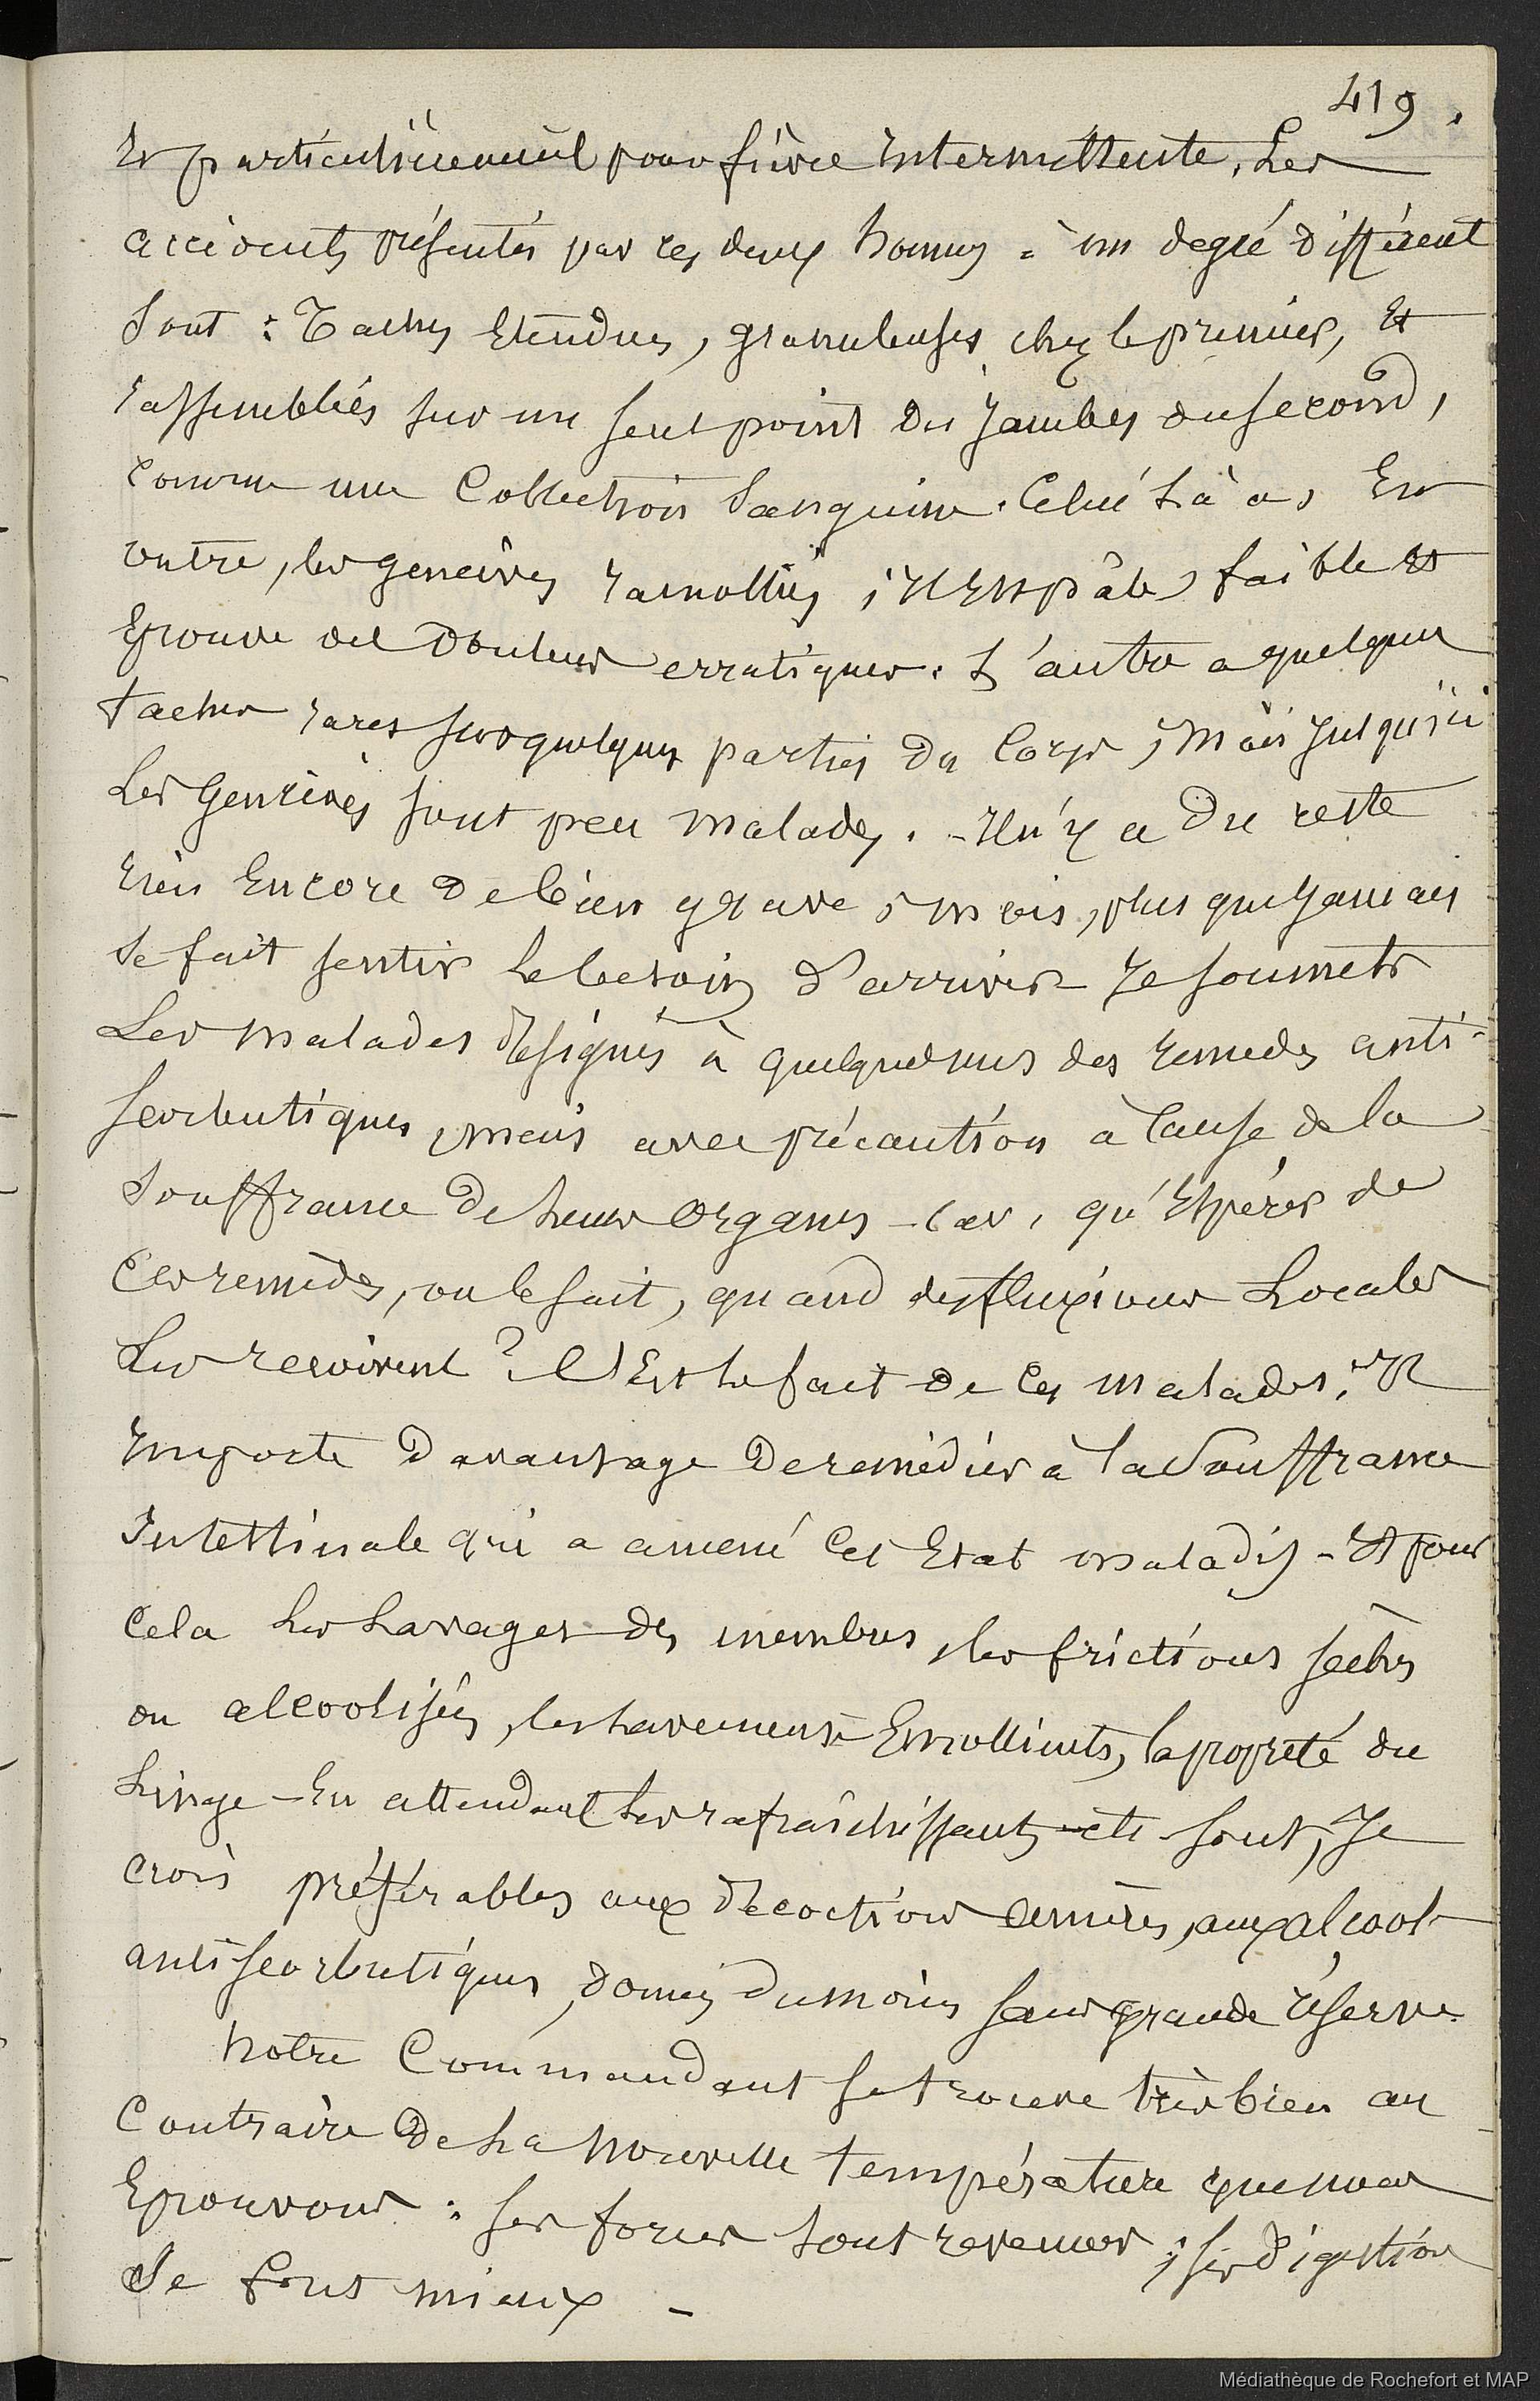 419.
Et particulièrement pour fièvre Intermittente. Les
accidents présentés par ces deux hommes à un degré différent
sont : Taches Etendues, granuleuses chez le premier, Et
rassemblées sur un seul point des jambes du second,
comme une Collection Sanguine. Celui là a, En
outre, les gencives ramollies ; Il Est pâle, faible Et
Eprouve des Douleurs erratiques. L'autre a quelques
taches rares sur quelques parties du Corps ; Mais jusqu'ici
Les Gencives sont peu malades. - Il n'y a Du reste
rien Encore De bien grave ; mais, plus que jamais
se fait sentir Le besoin d'arriver. Je soumets
Les malades désignés à quelques uns des remedes anti-
scorbutiques, mais avec précaution à Cause de la
Souffrance De Leurs Organes - Car, qu'Espérer de
Ces remèdes, on le sait, quand des fluxions Locales
Les reçoivent ? C'Est Le fait de Ces malades ; Il
Importe Davantage De remédier à La Souffrance
Intestinale qui a amené Cet Etat maladif - Et pour
Cela Les Lavages des membres, les frictions sèches
ou alcoolisées, les Lavements Emollients, la propreté du
Linge - En attendant Les rafraîchissants etc sont, Je
Crois préférables aux Décoctions amères, aux alcools
antiscorbutiques, donnés Du moins sans grande réserve.
Notre Commandant se trouve très bien au
Contraire De La Nouvelle température que nous
Eprouvons : ses forces sont revenues ; ses Digestions
Se font mieux -
Médiathèque de Rochefort et MAP